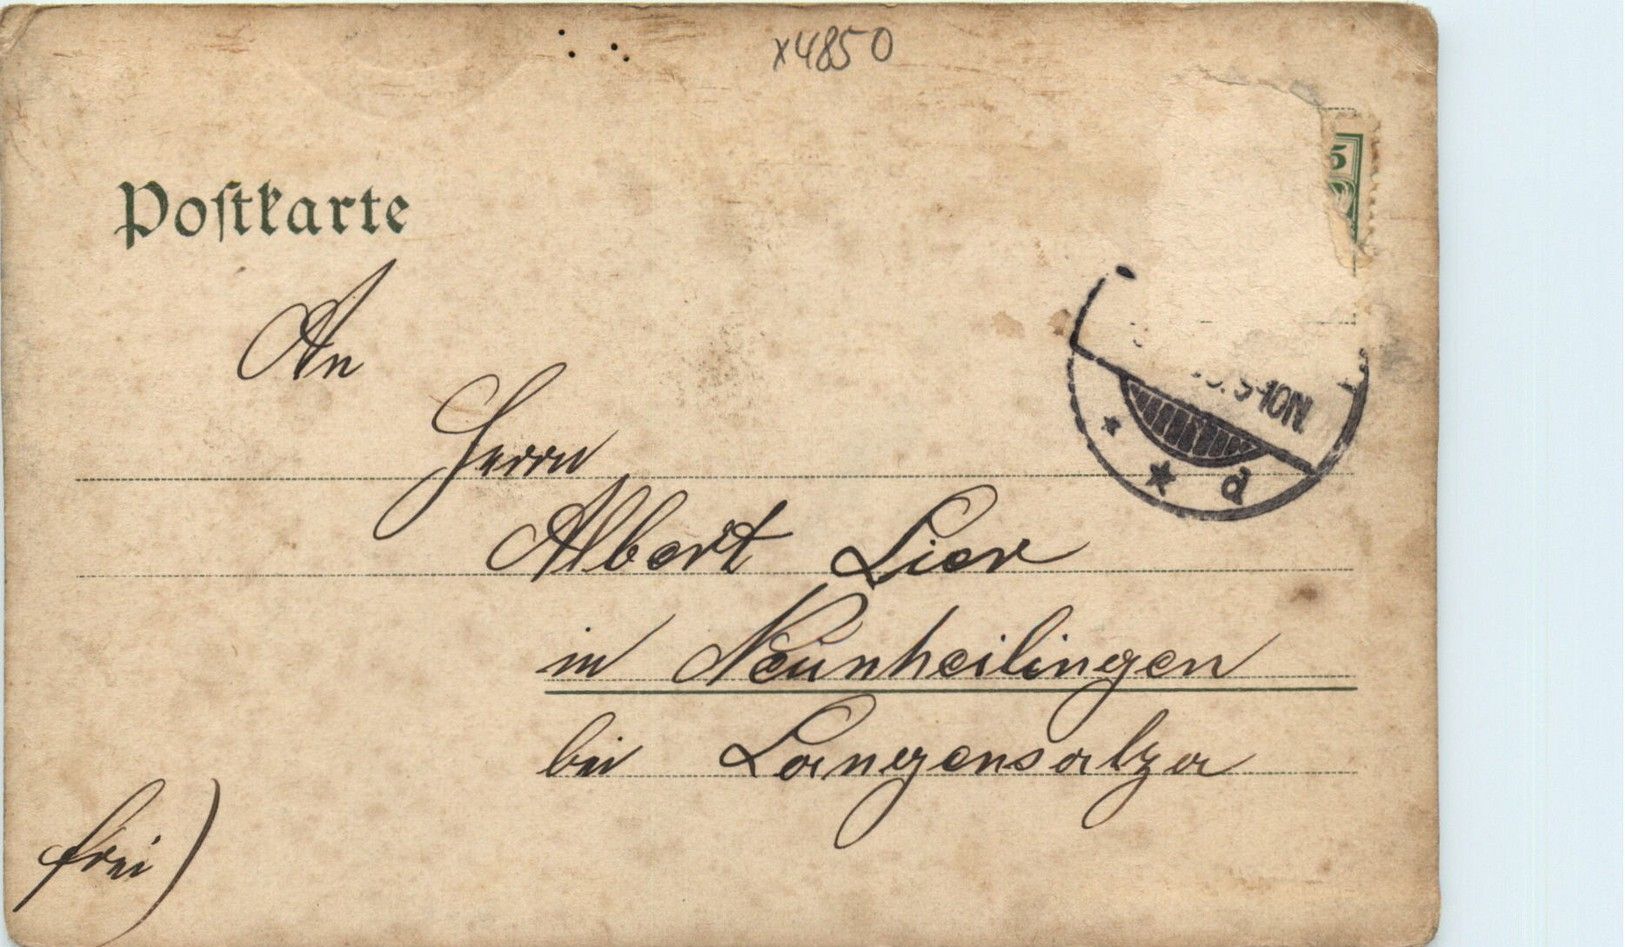 x4850
5
Postkarte
An
Herrn
Albert Lier
in Neunheilingen
bei Langensalza
frei)
9-10N.
d